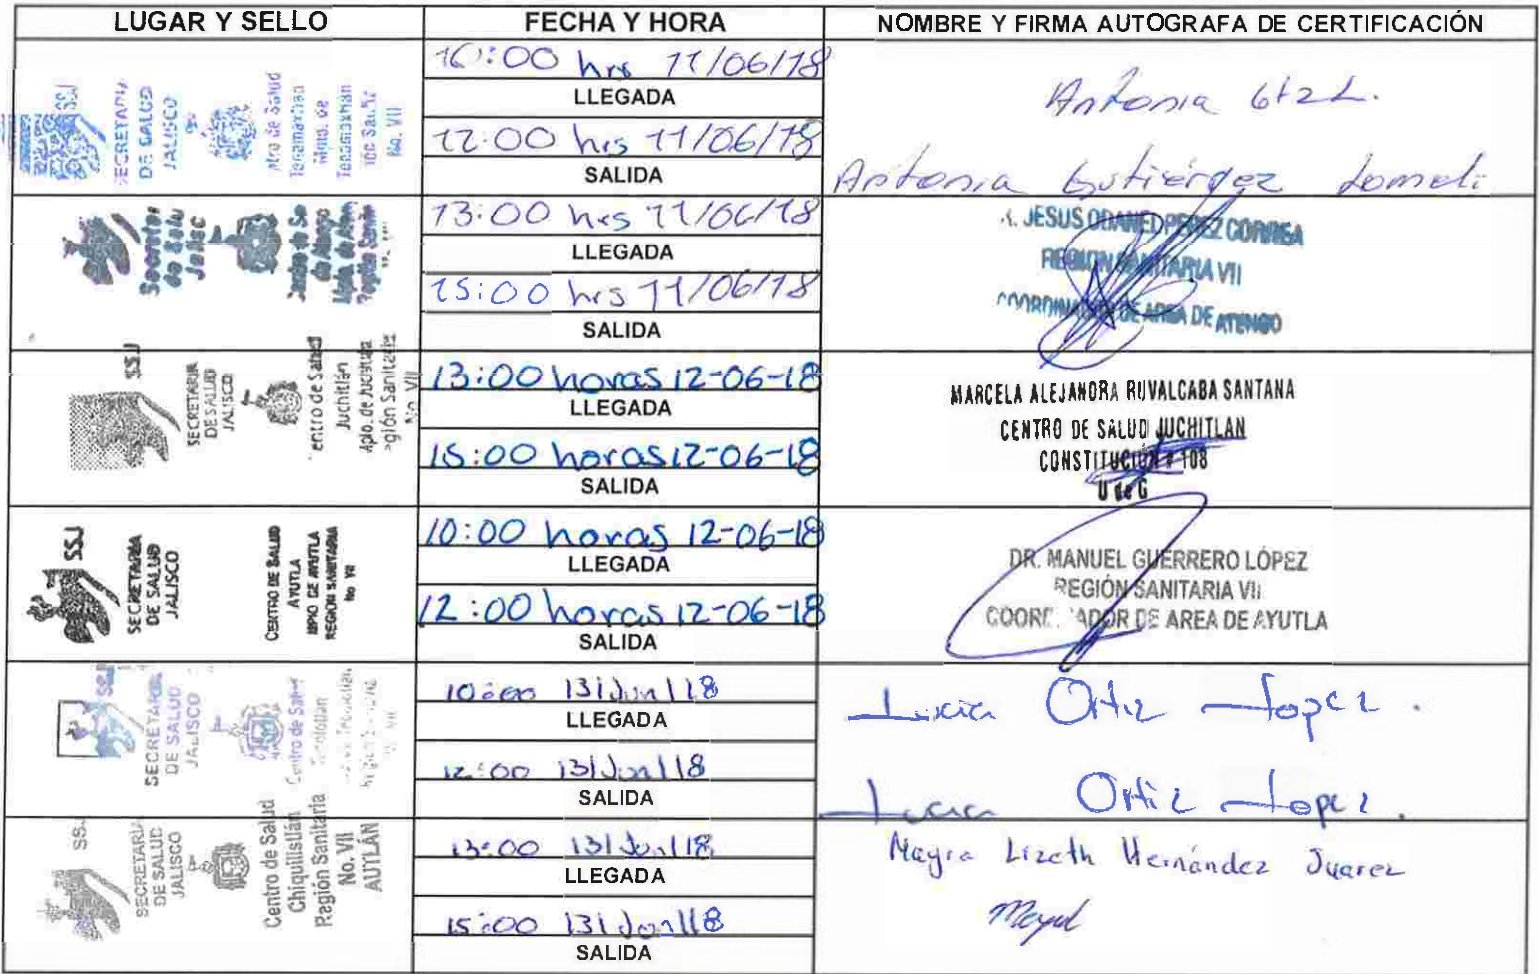 LUGAR Y SELLO
FECHA Y HORA
NOMBRE Y FIRMA AUTOGRAFA DE CERTIFICACIÓN
SSJ
SECRETARIA
DE SALUD
JALISCO
Tenamaxtlan
No. VII
10:00 hrs 11/06/18
LLEGADA
12:00 hrs 11/06/18
SALIDA
Antonia Gtz L.
Antonia Gutiérrez Lomelí
13:00 hrs 11/06/18
LLEGADA
15:00 hrs 11/06/18
SALIDA
JESUS ODANED PEREZ CORREA
REGION SANITARIA VII
COORDINADOR DE AREA DE ATENGO
SSJ
SECRETARIA
DE SALUD
JALISCO
entro de Salud
Juchitlán
pio. de Juchitlán
gión Sanitaria
No. VII
13:00 horas 12-06-18
LLEGADA
15:00 horas 12-06-18
SALIDA
MARCELA ALEJANDRA RUVALCABA SANTANA
CENTRO DE SALUD JUCHITLAN
CONSTITUCIÓN # 108
U de G
SSJ
SECRETARIA
DE SALUD
JALISCO
CENTRO DE SALUD
AYUTLA
MPIO DE AYUTLA
REGION SANITARIA
No VII
10:00 horas 12-06-18
LLEGADA
12:00 horas 12-06-18
SALIDA
DR. MANUEL GUERRERO LÓPEZ
REGIÓN SANITARIA VII
COORDINADOR DE AREA DE AYUTLA
SSJ
SECRETARIA
DE SALUD
JALISCO
Centro de Salud
10:00 13/Jun/18
LLEGADA
12:00 13/Jun/18
SALIDA
Lucia Ortiz Lopez.
Lucia Ortiz Lopez.
SSJ
SECRETARIA
DE SALUD
JALISCO
Centro de Salud
Chiquilistlán
Región Sanitaria
No. VII
AUTLÁN
13:00 13/Jun/18
LLEGADA
15:00 13/Jun/18
SALIDA
Mayra Lizeth Hernández Juarez